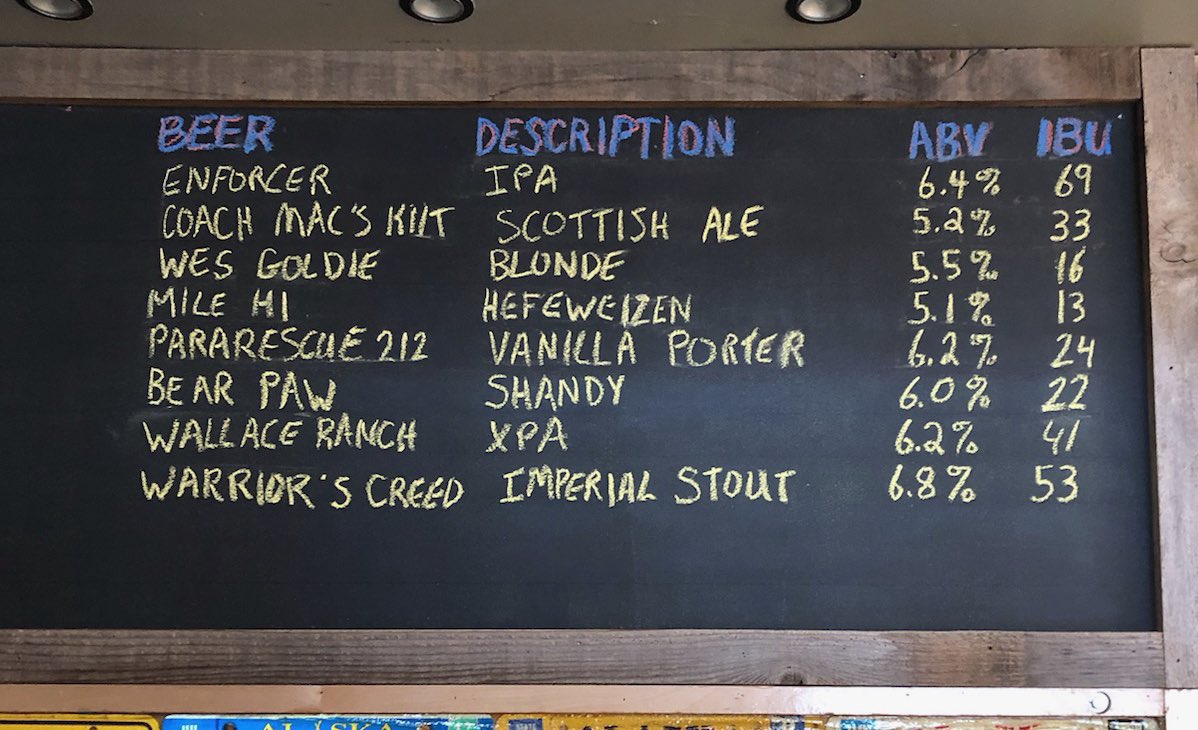 BEER DESCRIPTION ABV IBU
ENFORCER IPA 6.4% 69
COACH MAC'S KILT SCOTTISH ALE 5.2% 33
WES GOLDIE BLONDE 5.5% 16
MILE HI HEFEWEIZEN 5.1% 13
PARARESCUE 212 VANILLA PORTER 6.2% 24
BEAR PAW SHANDY 6.0% 22
WALLACE RANCH XPA 6.2% 41
WARRIOR'S CREED IMPERIAL STOUT 6.8% 53
ALASKA